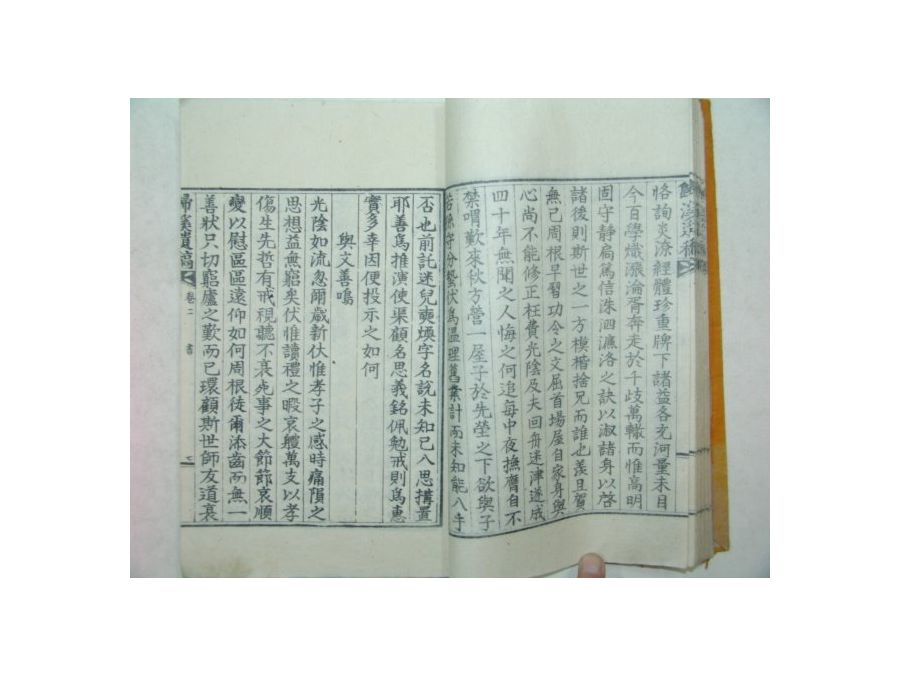 恪詢炎潦經體珍重牌下諸益各充河量未目
今百學熾漲淪胥奔走於千歧萬轍而惟高明
固守靜扃篤信洙泗濂洛之訣以淑諸身以啓
諸後則斯世之一方模楷捨兄而誰也羨且賀
無已周根早習功令之文屈首場屋自家身與
心尚不能修正枉費光陰及夫回舟迷津遂成
四十年無聞之人悔之何追每中夜撫膺自不
禁喟歎來秋方營一屋子於先塋之下欲與子
守分蟄伏爲溫理舊業計而未知能入手
否也前託迷兒奭煐字名說未知已入思搆置
耶善爲推演使渠顧名思義銘佩勉戒則爲惠
實多幸因便投示之如何
與文善鳴
光陰如流忽爾歲新伏惟孝子之感時痛隕之
思想益無窮矣伏惟讀禮之暇哀軆萬支以孝
傷生先哲有戒視聽不衰必事之大節節哀順
變以慰區區遠仰如何周根徒爾添齒而無一
善狀只切窮廬之歎而已環顧斯世師友道衰
歸溪遺稿 卷二 書 七